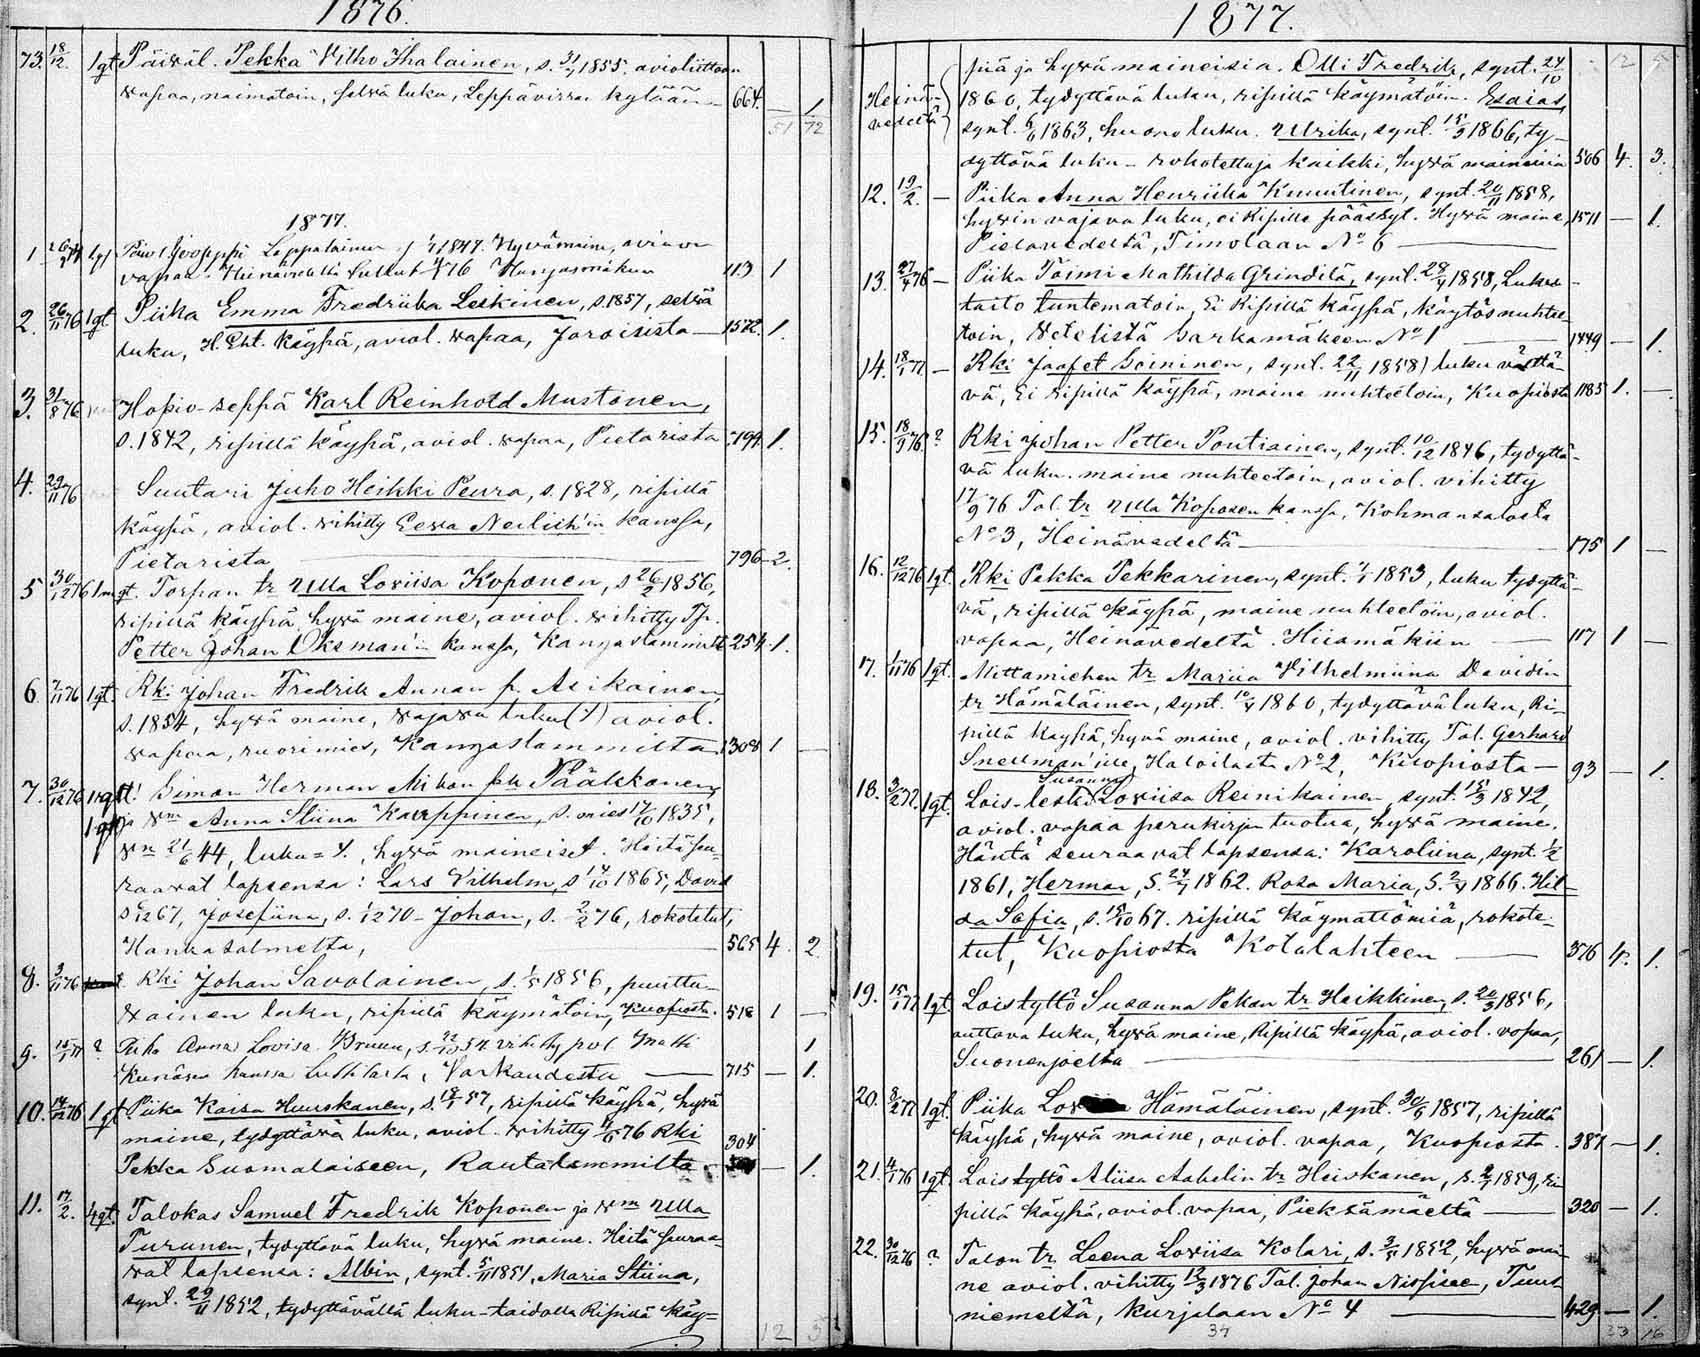 1876.
73. 18/12. 1gt Päiväl. Pekka Vilho Ihalainen, s. 31/7 1855. avioliittoon
vapaa, naimatoin, selvä luku, Leppävirran kylään 664. — 1
51 72
1877.
1 1gt Leppälainen s. 1/1 1847. Hyvämaine, aviovapaa Heinävedeltä 113 1
2. 26/11 76 1gt Piika Emma Fredriika Leskinen, s. 1857, selvä
luku, H. Eht. käypä, aviol. vapaa, Joroisista — 1572. 1.
3. 31/8 76 Hopio-seppä Karl Reinhold Mustonen,
s. 1842, ripillä käypä, aviol. vapaa, Pietarista 799. 1.
4. 29/11 76 Suutari Juho Heikki Peura, s. 1828, ripillä
käypä, aviol. vihitty Eeva kanssa,
Pietarista — 796 — 2.
5 30/12 76 Torpan tr Ulla Loviisa Koponen, s 26/2 1856,
ripillä käypä, hyvä maine, aviol. vihitty Tp.
Petter Johan Oksman'in kanssa, Kangaslammilta 254 — 1.
6 7/11 76 1gt. Rki. Johan Fredrik Annan p. Asikainen,
s. 1854, hyvä maine, vajava luku (1) aviol.
vapaa, ruorimies, Kangaslammilta 1308 1 —
7. 30/12 76 Simon Herman Mikon pk Pääkkönen
1gt ja vm Anna Stiina Karppinen, s. mies 17/10 1835,
vm 21/6 44, luku = 1., hyvä maineiset. Heitä seu-
raavat lapsensa: Lars Vilhelm, s 17/10 1865, David
s 67, Josefiina, s. 1/12 70 — Johan, s. 2/2 76, rokotetut,
Hankasalmelta, — 565 4. 2.
8. 3/11 76 Rki Johan Savolainen, s. 1/5 1856, puuttu-
vainen luku, ripillä käymätöin, Kuopiosta. 518 1 —
9. 15/1 77 ? Piika Anna Lovisa Bruun, s. 54 vihitty pol. Matti 1
Kunäsen kanssa Varkaudesta — 715 — 1.
10. 14/12 76 1gt Piika Kaisa Huuskonen, s. 18/1 57, ripillä käypä, hyvä
maine, tydyttävä luku, aviol. vihitty 4/6 76 Rki 304
Pekka Suomalaiseen, Rautalammilta — 1.
11. 17/2. 4gt. Talokas Samuel Fredrik Koponen ja vm Ulla
Turunen, tydyttävä luku, hyvä maine. Heitä seuraa-
vat lapsensa: Albin, synt. 5/11 1851, Maria Stiina,
synt. 29/11 1852, tydyttävällä luku-taidolla Ripillä käy=
12 3
1877.
piä ja hyvä maineisia. Olli Fredrik, synt. 24/10
Heinä-
vedeltä
1860, tydyttävä luku, ripillä käymätöin. Esaias,
synt. 6/6 1863, huono luku. Ulrika, synt. 15/3 1866, ty-
dyttävä luku — rokotettuja kaikki, hyvä maineisia 506 4. 3.
12. 19/2. — Piika Anna Henriika Knuutinen, synt. 20/11 1858,
hyvin vajava luku, ei Ripille päässyt. Hyvä maine, 1571 — 1.
Pielavedeltä, Timolaan No 6 —
13. 27/9 76 — Piika Toimi Mathilda Grinditä, synt. 28/4 1858, Luku-
taito tuntematoin, Ei Ripillä käypä, käytös nuhtee-
toin, Vetelistä Sarkamäkeen No 1 — 1449 — 1.
14. 18/1 77 — Rki Jaafet Soininen, synt. 22/11 1858) luku välttä-
vä, Ei ripillä käypä, maine nuhteetoin, Kuopiosta 1185 1. —
15. 18/9 76 ? Rki Johan Petter Pontiainen, synt. 10/12 1846, tydyttä-
vä luku. maine nuhteetoin, aviol. vihitty
17/9 76 Tal. tr Ulla Koposen kanssa, Kohmansalosta
No 3, Heinävedeltä — 175 1 —
16. 12/12 76 1gt. Rki Pekka Pekkarinen, synt. 1/1 1853, luku tydyttä-
vä, ripillä käypä, maine nuhteetoin, aviol.
vapaa, Heinävedeltä. Hiismäkiin — 117 1 —
17. 1/11 76 1gt. Mittamiehen tr Mariia Vilhelmiina Davidin
tr Hämäläinen, synt. 10/4 1860, tydyttävä luku, Ri-
pillä käypä, hyvä maine, aviol. vihitty Tal. Gerhard
Snellman'ille, Haloilast No 2, Kuopiosta — 93 — 1.
18. 3/2 77. 1gt. Lois-leski Susanna Loviisa Reinikainen, synt. 15/3 1842,
aviol. vapaa perukirjan tuotua, hyvä maine.
Häntä seuraavat lapsensa: Karoliina, synt. 1/2
1861, Herman, S. 24/7 1862. Rosa Maria, S. 2/4 1866. Hil-
da Sofia, s. 15/10 67. ripillä käymättömiä, rokote-
tut, Kuopiosta Kotalahteen — 376 4. 1.
19. 15/1 77 1gt. Lois tyttö Susanna Pekan tr. Heikkinen, s. 20/3 1856,
auttava luku, hyvä maine, Ripillä käypä, aviol. vapaa,
Suonenjoelta — 261 — 1.
20. 8/2 77 1gt. Piika Hämäläinen, synt. 30/6 1857, ripillä
käypä, hyvä maine, aviol. vapaa, Kuopiosta. 387 — 1.
21. 4/1 76 1gt. Lois tyttö Aliisa Aabelin tr Heiskanen, s. 2/1 1859, ri-
pillä käypä, aviol. vapaa, Pieksämäeltä — 320 — 1.
22. 30/12 76 ? Talon tr. Leena Loviisa Kolari, s. 3/5 1852, hyvä mai-
ne aviol. vihitty 12/3 1876 Tal. Johan Nissisee, Tuus-
niemeltä, Kurjalaan No 4 — 429 — 1.
34 33 16